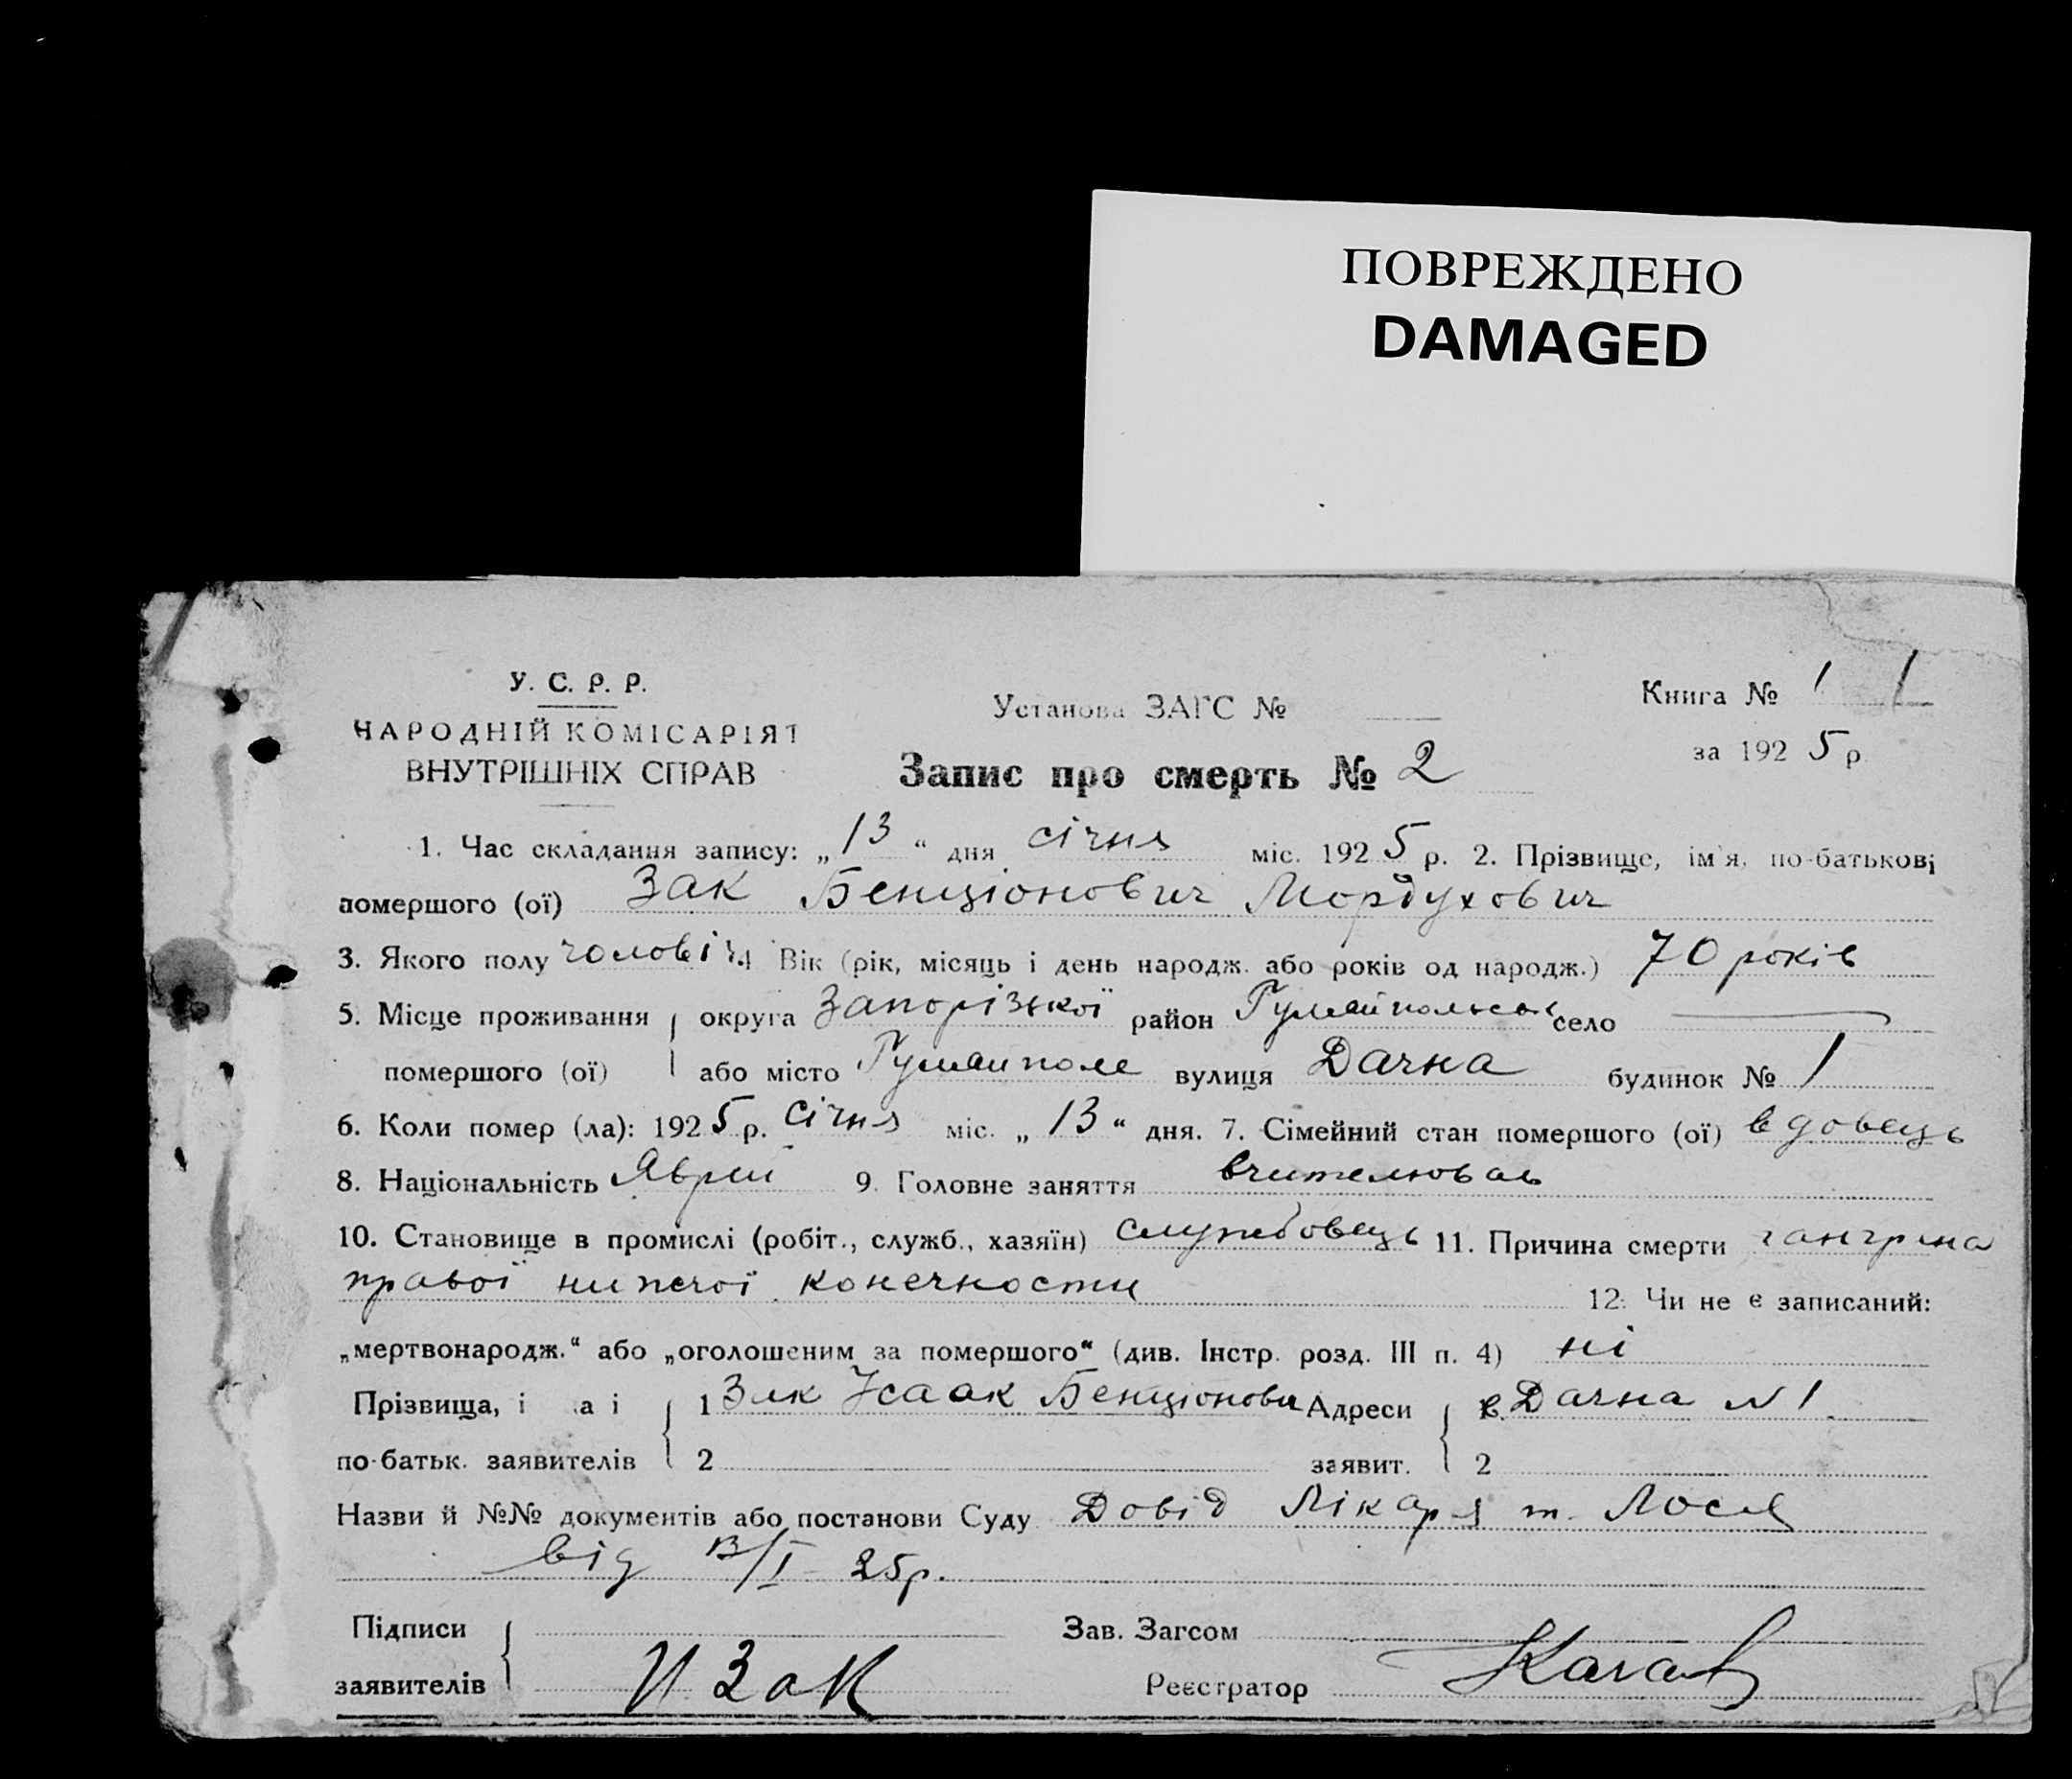 ПОВРЕЖДЕНО
DAMAGED
У. С. Р. Р.
НАРОДНІЙ КОМІСАРІЯТ
ВНУТРІШНІХ СПРАВ
Установа ЗАГС №
Книга № 1 1
за 1925 р
Запис про смерть № 2
1. Час складання запису: „13“ дня січня міс. 1925 р. 2. Прізвище, ім'я, по-батькові
помершого (ої) Зак Бенціонович Мордухович
3. Якого полу чоловіч. 4 Вік (рік, місяць і день народж. або років од народж.) 70 років
5. Місце проживання округа Запорізької район село
помершого (ої) або місто Гуляйполе вулиця Дачна будинок № 1
6. Коли помер (ла): 1925 р. січня міс. „13“ дня. 7. Сімейний стан помершого (ої) вдовець
8. Національність Яврей 9. Головне заняття вчителював
10. Становище в промислі (робіт., служб., хазяїн) службовець 11. Причина смерти гангрина
правої нижчої конечности 12. Чи не є записаний:
„мертвонародж.“ або „оголошеним за помершого“ (див. Інстр. розд. III п. 4) ні
Прізвища, і а і 1 Зак Ісаак Бенціонови Адреси в. Дачна N 1
по-батьк. заявителів 2 заявит. 2
Назви й №№ документів або постанови Суду Довід Лікаря т. Лося
від 13/I 25р.
Підписи Зав. Загсом
заявителів И Зак Реєстратор